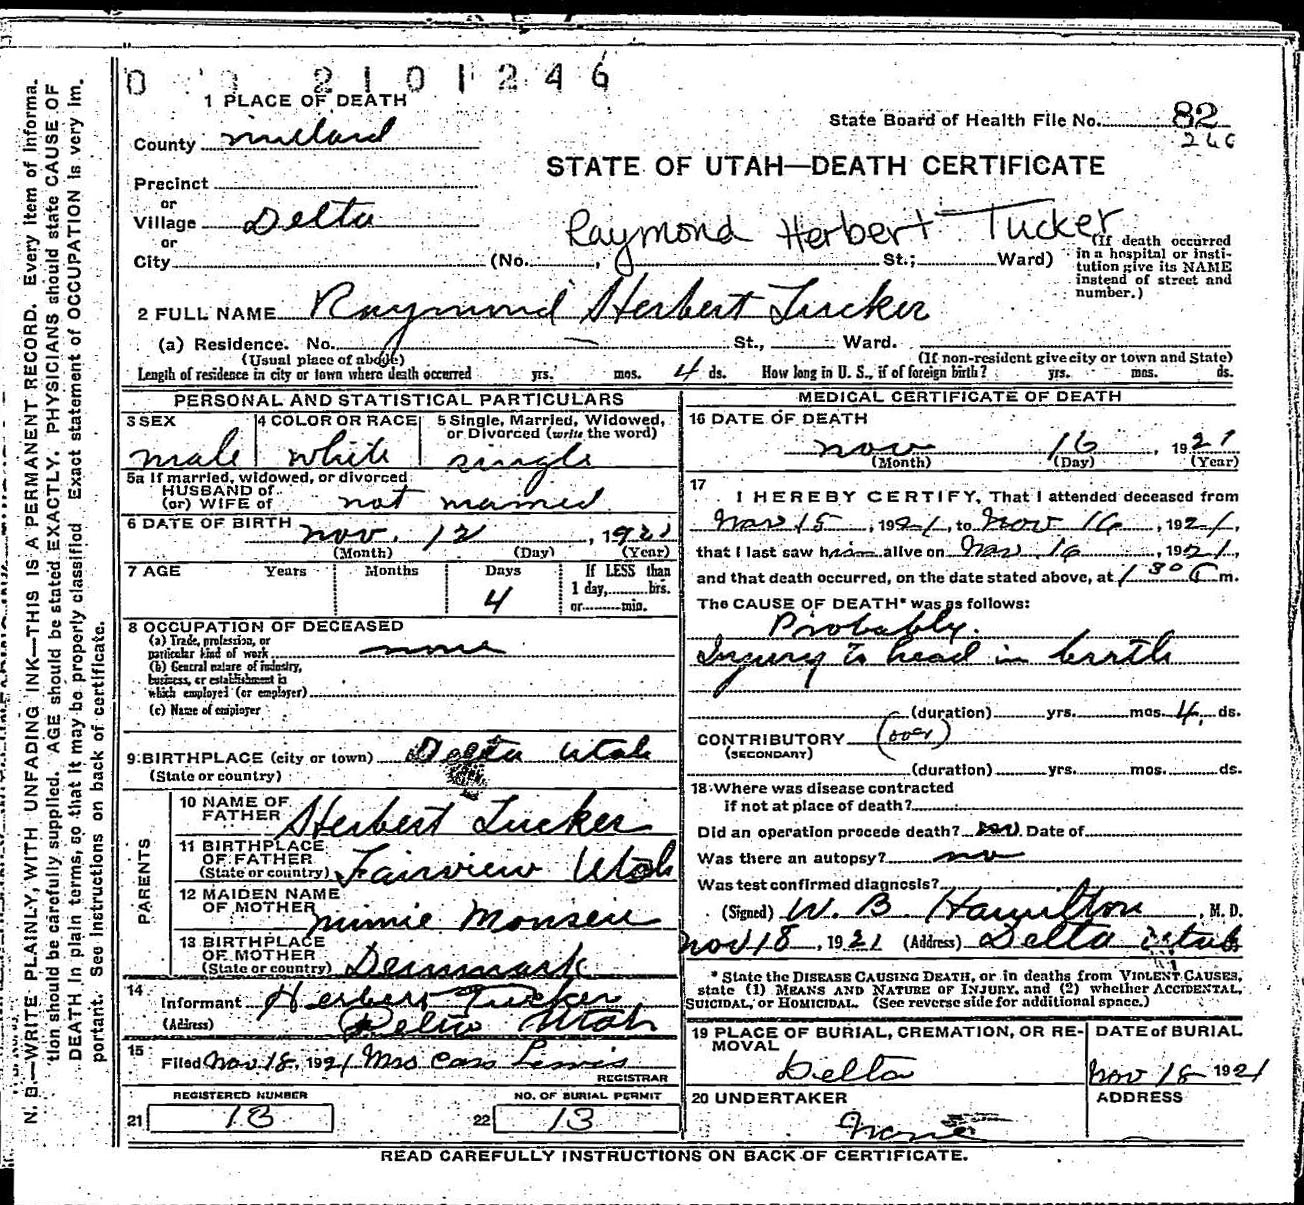 0 0 2101246
1 PLACE OF DEATH
County Millard
State Board of Health File No. 82
266
STATE OF UTAH—DEATH CERTIFICATE
Precinct
or
Village Delta
or
Raymond Herbert Tucker
City (No. , St.; Ward)
(If death occurred in a hospital or insti-
tution give its NAME
instead of street and
number.)
2 FULL NAME Raymond Herbert Tucker
(a) Residence. No. — St., Ward.
(Usual place of abode) (If non-resident give city or town and State)
Length of residence in city or town where death occurred yrs. mos. 4 ds. How long in U. S., if of foreign birth? yrs. mos. ds.
PERSONAL AND STATISTICAL PARTICULARS
3 SEX 4 COLOR OR RACE 5 Single, Married, Widowed,
or Divorced (write the word)
male white single
5a If married, widowed, or divorced
HUSBAND of
(or) WIFE of not married
6 DATE OF BIRTH Nov. 12, 1921
(Month) (Day) (Year)
7 AGE Years Months Days If LESS than
1 day, hrs.
or min.
4
8 OCCUPATION OF DECEASED
(a) Trade, profession, or
particular kind of work none
(b) General nature of industry,
business, or establishment in
which employed (or employer)
(c) Name of employer
9 BIRTHPLACE (city or town) Delta Utah
(State or country)
PARENTS
10 NAME OF
FATHER Herbert Tucker
11 BIRTHPLACE
OF FATHER
(State or country) Fairview Utah
12 MAIDEN NAME
OF MOTHER Minnie Monsen
13 BIRTHPLACE
OF MOTHER
(State or country) Denmark
14
Informant Herbert Tucker
(Address) Delta Utah
15
Filed Nov 18, 1921 Mrs Cass Lewis
REGISTRAR
REGISTERED NUMBER NO. OF BURIAL PERMIT
21 13 22 13
MEDICAL CERTIFICATE OF DEATH
16 DATE OF DEATH
Nov 16, 1921
(Month) (Day) (Year)
17
I HEREBY CERTIFY, That I attended deceased from
Nov 15, 1921, to Nov 16, 1921,
that I last saw him alive on Nov 16, 1921,
and that death occurred, on the date stated above, at 1 30 m.
The CAUSE OF DEATH* was as follows:
Probably
Injury to head in birth
(duration) yrs. mos. 4 ds.
CONTRIBUTORY (over)
(SECONDARY)
(duration) yrs. mos. ds.
18 Where was disease contracted
if not at place of death?
Did an operation precede death? no Date of
Was there an autopsy? no
Was test confirmed diagnosis?
(Signed) W. B. Hamilton, M. D.
Nov 18, 1921 (Address) Delta Utah
* State the DISEASE CAUSING DEATH, or in deaths from VIOLENT CAUSES,
state (1) MEANS AND NATURE OF INJURY, and (2) whether ACCIDENTAL,
SUICIDAL, or HOMICIDAL. (See reverse side for additional space.)
19 PLACE OF BURIAL, CREMATION, OR RE-
MOVAL
Delta
DATE of BURIAL
Nov 18 1921
20 UNDERTAKER
None
ADDRESS
READ CAREFULLY INSTRUCTIONS ON BACK OF CERTIFICATE.
N. B.—WRITE PLAINLY, WITH UNFADING INK—THIS IS A PERMANENT RECORD. Every item of informa-
tion should be carefully supplied. AGE should be stated EXACTLY. PHYSICIANS should state CAUSE OF
DEATH in plain terms, so that it may be properly classified. Exact statement of OCCUPATION is very im-
portant. See instructions on back of certificate.